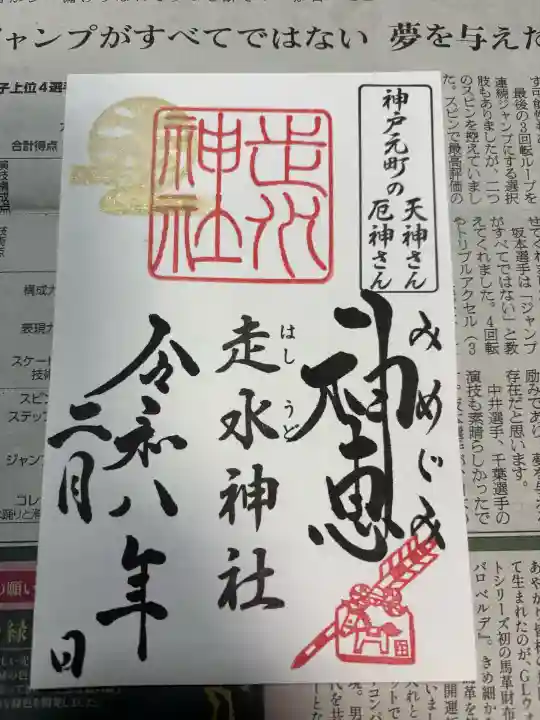 ジャンプがすべてではない 夢を与えた
神戸元町の
天神さん
厄神さん
神恵
みめぐみ
走水神社
はしうど
走水神社
令和八年
二月
日
子上位4選手
合計得点
演技構成点
技術点
構成力
表現力
スケート
技術
スピン
ステップ
ジャンプ
コレ
最後の3回転ループを
連続ジャンプにする選択
肢もありましたが、二つ
のスピンを控えていまし
た。スピンで最高評価の
坂本選手は「ジャンプ
がすべてではない」と教
えてくれました。4回転
やトリプルアクセル(3
励みであり、夢を与える
存在だと思います。
中井選手、千葉選手の
演技も素晴らしかったで
て生まれたのが、GLウ
トシリーズ初の馬革財布
バロベルデ』。きめ細か